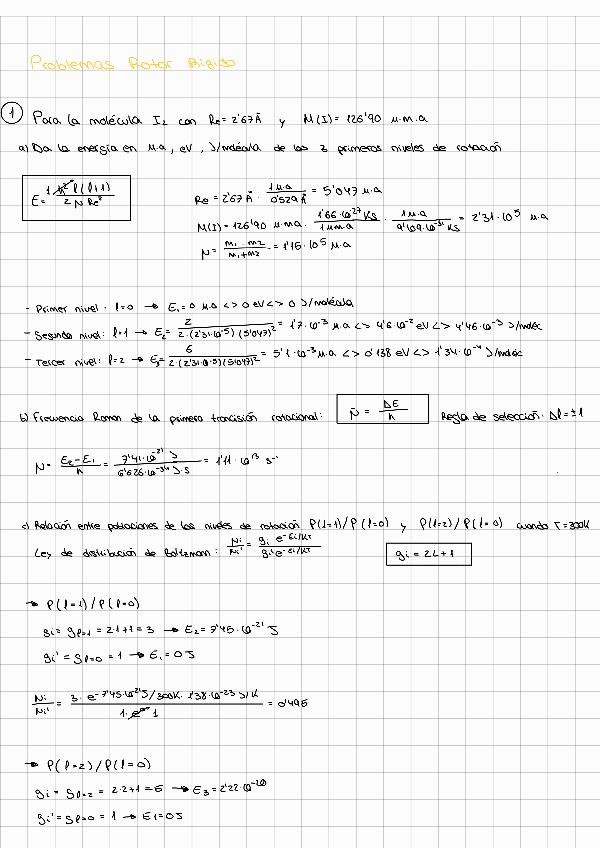 Problemas Rotor Rígido
1 Para la molécula I2 con Re = 2'67 Å y M(I) = 126'90 u.m.a
a) Da la energía en u.a, eV, J/molécula de los 3 primeros niveles de rotación
E = 1 ħ² l(l+1) / 2 N Re²
Re = 2'67 Å · 1 u.a / 0'529 Å = 5'047 u.a
M(I) = 126'90 u.ma · 1'66·10⁻²⁷ Kg / 1 uma · 1 u.a / 9'109·10⁻³¹ Kg = 2'31·10⁵ u.a
μ = m1 · m2 / m1+m2 = 1'15·10⁵ u.a
- Primer nivel: l=0 → E1 = 0 u.a <> 0 eV <> 0 J/molécula
- Segundo nivel: l=1 → E2 = 2 / 2·(2'31·10⁻⁵)(5'047)² = 1'7·10⁻³ u.a <> 4'6·10⁻² eV <> 4'46·10⁻³ J/moléc
- Tercer nivel: l=2 → E3 = 6 / 2(2'31·10⁻⁵)(5'047)² = 5'1·10⁻³ u.a <> 0'138 eV <> 1'34·10⁻⁴ J/moléc
b) Frecuencia Raman de la primera transición rotacional: ν = ΔE / h Regla de selección. Δl = ±1
ν = E2 - E1 / h = 7'41·10⁻²¹ J / 6'626·10⁻³⁴ J·s = 1'11·10¹³ s⁻
c) Relación entre poblaciones de los niveles de rotación P(l=1)/P(l=0) y P(l=2)/P(l=0) cuando T=300K
Ley de distribución de Boltzmann: Ni / Ni' = gi e^-Ei/KT / gi' e^-Ei/KT gi = 2L+1
→ P(l=1)/P(l=0)
gi = gl=1 = 2·1+1 = 3 → E2 = 7'45·10⁻²¹ J
gi' = gl=0 = 1 → E1 = 0J
Ni / Ni' = 3·e^-7'45·10⁻²¹ J/300K·1'38·10⁻²³ J/K / 1·e⁰ 1 = 0'495
→ P(l=2)/P(l=0)
gi = gl=2 = 2·2+1 = 5 → E3 = 2'22·10⁻²⁰
gi' = gl=0 = 1 → E1 = 0J